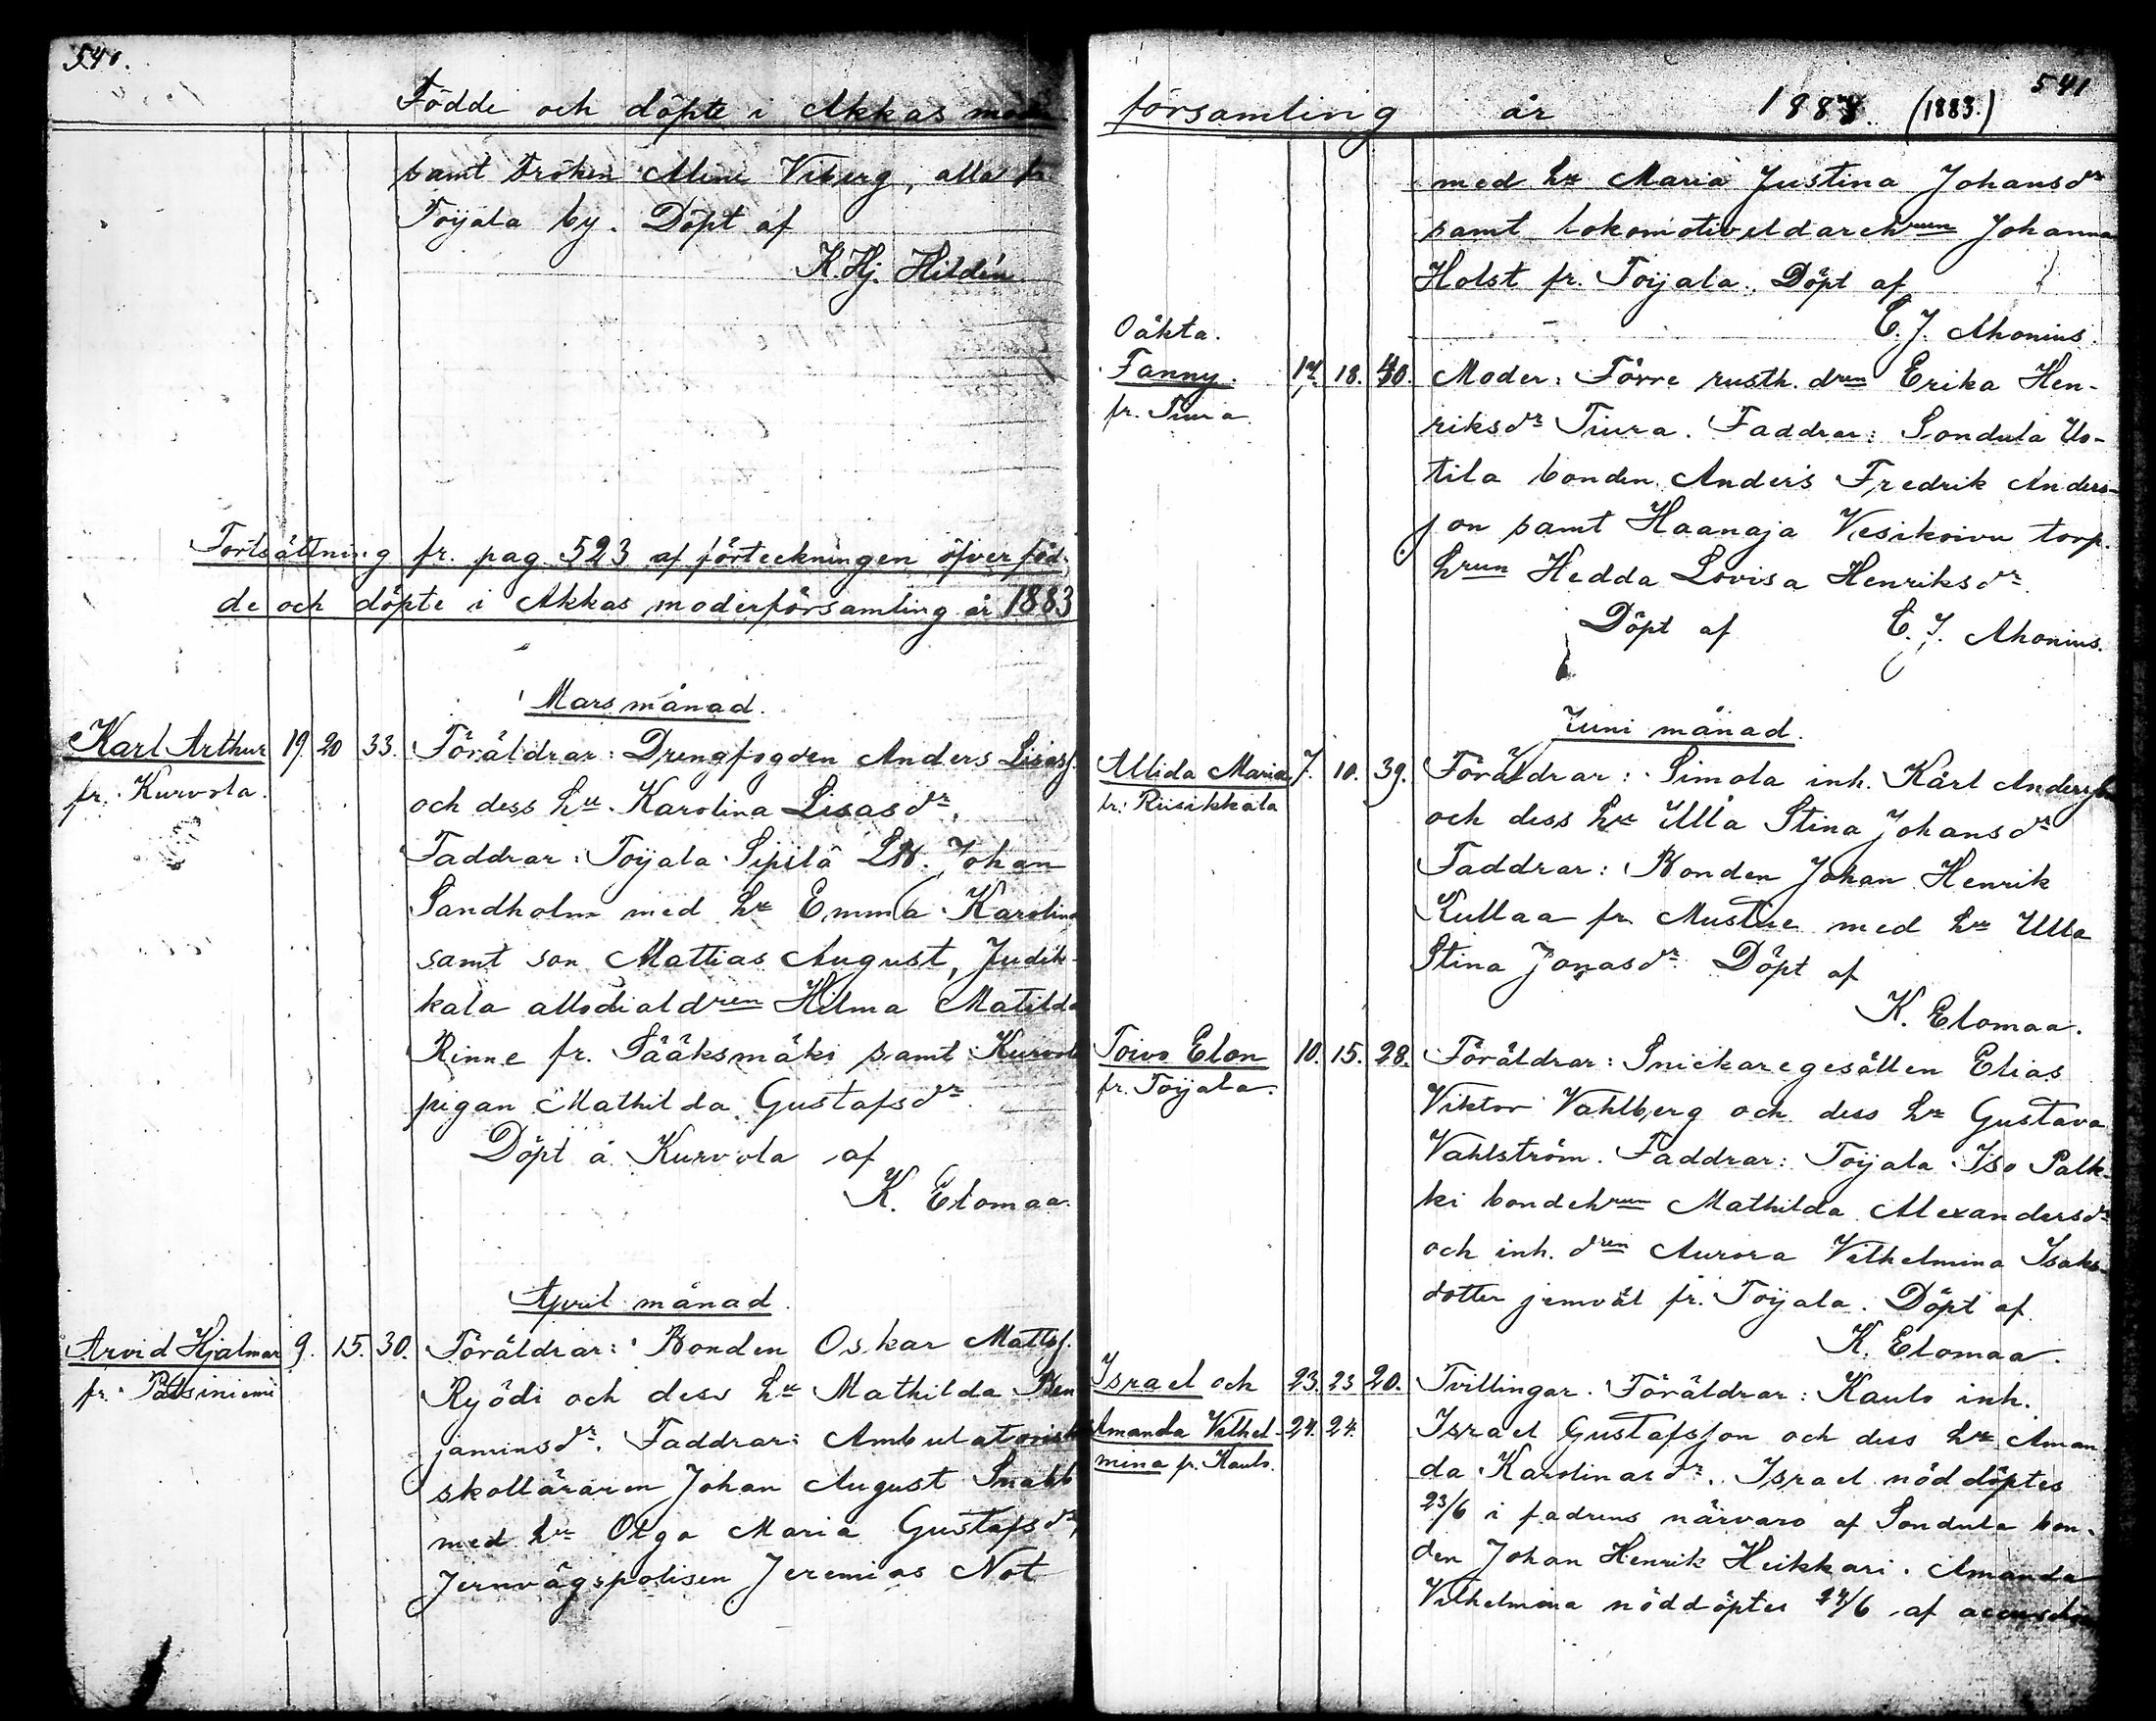 540.
Födde och döpte i Akkas moder
samt fröken Alma Viberg, alla fr.
Toijala by. Döpt af
K. Hj. Hildén
Fortsättning fr. pag. 523 af förteckningen öfver föd-
de och döpte i Akkas moderförsamling år 1883
Mars månad.
Karl Arthur 19. 20 33. Föräldrar: Drengfogden Anders Lisasf.
fr. Kurvola. och dess hu. Karolina Lisasdr.
Faddrar: Toijala Sipilä Johan
Sandholm med hu Emma Karolina
samt son Mattias August, Judik-
kala allodialdren Hilma Matilda
Rinne fr. Sääksmäki samt Kurvola
pigan Mathilda Gustafsdr.
Döpt å Kurvola af
K. Elomaa.
April månad.
Arvid Hjalmar 9. 15. 30. Föräldrar: Bonden Oskar Mattsf.
fr. Patsiniemi Ryödi och dess hu Mathilda Ben
jaminsdr. Faddrar: Ambulatorisk
skolläraren Johan August Snabb
med hu Olga Maria Gustafsdr,
Jernvägspolisen Jeremias Not
541
församling år 1884. (1883.)
med hu Maria Justina Johansdr
samt lokomotiveldarehrun Johanna
Holst fr. Toijala. Döpt af
E. J. Ahonius.
Oäkta.
Fanny. 14. 18. 40. Moder: Förre rusth. dren Erika Hen-
fr. Tiura riksdr Tiura. Faddrar: Sondula Us-
tila bonden Anders Fredrik Anders-
son samt Haanaja Vesikoivu torp.
hrun Hedda Lovisa Henriksdr.
Döpt af E. J. Ahonius.
Juni månad.
Allida Maria 7. 10. 39. Föräldrar: Simola inh. Karl Andersson
fr. Riisikkala och dess hu Ulla Stina Johansdr
Faddrar: Bonden Johan Henrik
Kullaa fr. Mustue med hu Ulla
Stina Jonasdr. Döpt af
K. Elomaa.
Toivo Elon 10. 15. 28. Föräldrar: Snickaregesällen Elias
fr. Toijala. Viktor Vahlberg och dess hu Gustava
Vahlström. Faddrar: Toijala Iso Palk-
ki bondehrun Mathilda Alexandersdr
och inh. dren Aurora Vilhelmina Isaks-
dotter jemväl fr. Toijala. Döpt af
K. Elomaa.
Israel och 23. 23 20. Tvillingar. Föräldrar: Kauls inh.
Amanda Vilhel- 24. 24. Israel Gustafsson och dess hu Aman
mina fr. Kauls. da Karolinasdr. Israel nöddöptes
23/6 i fadrens närvaro af Sondula bon-
den Johan Henrik Heikkari. Amanda
Vilhelmina nöddöptes 24/6 af